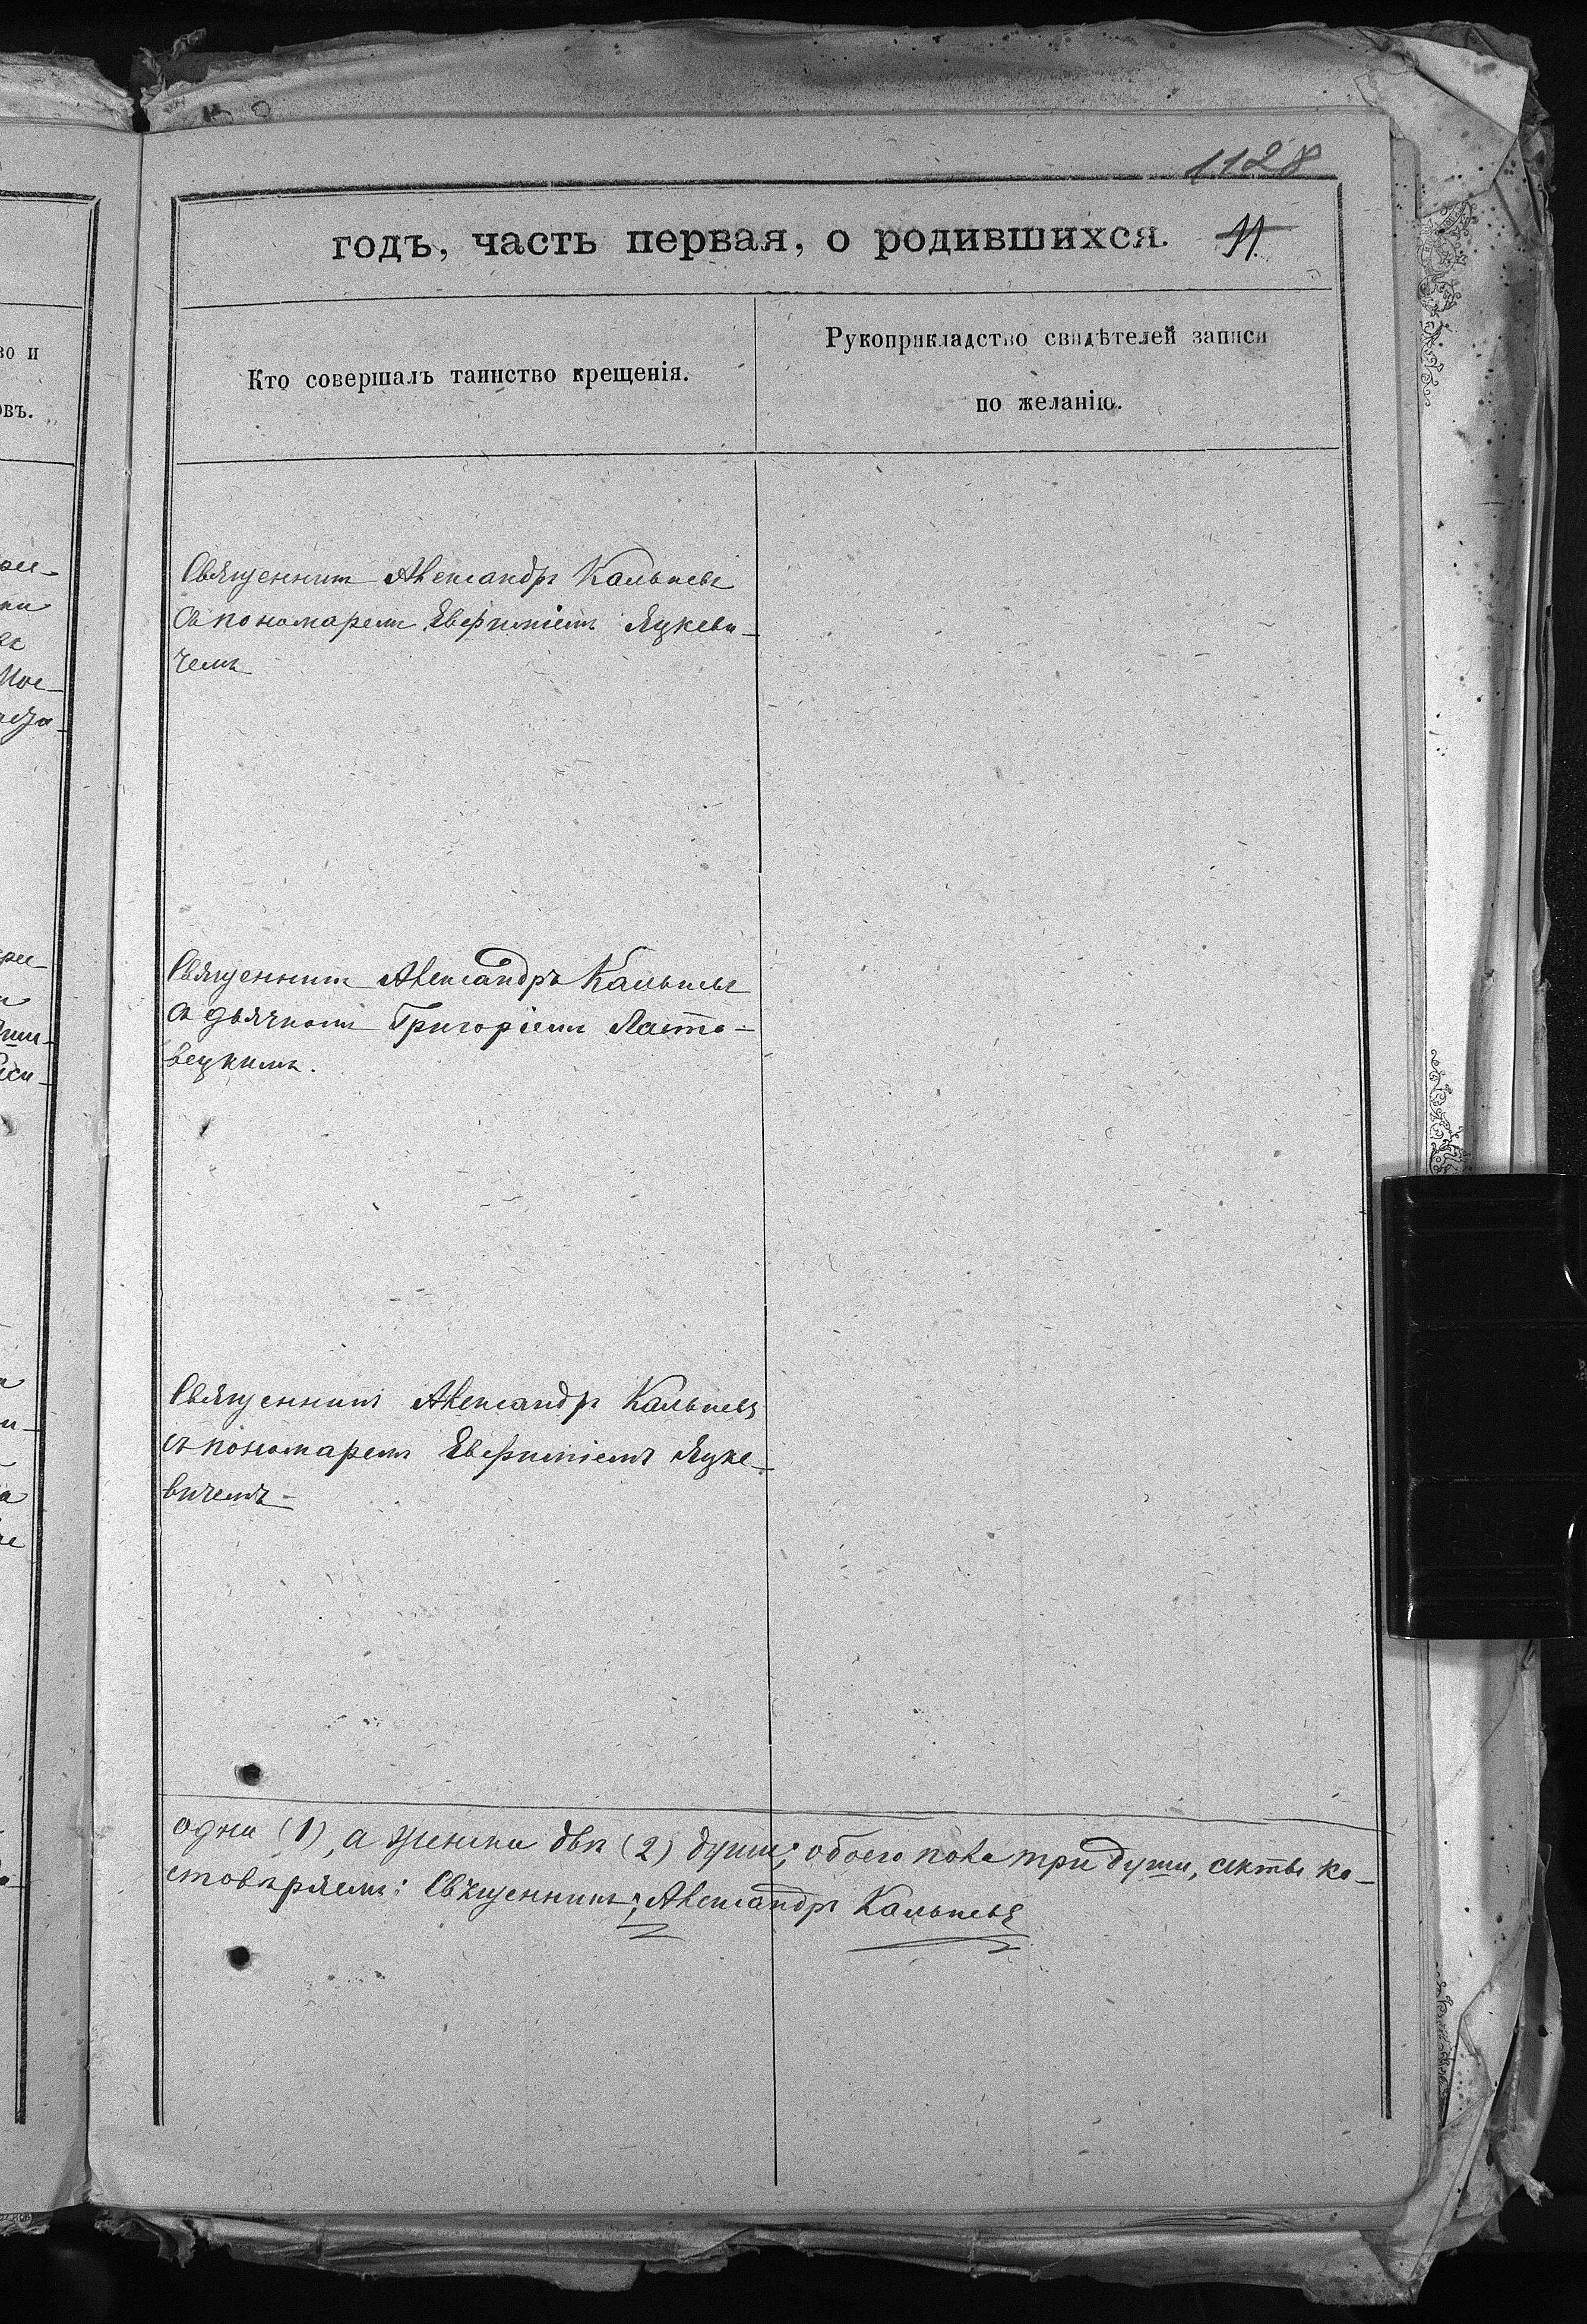 1128
годъ, часть первая, о родившихся. 11.
Кто совершалъ таинство крещенія.
Рукоприкладство свидѣтелей записи
по желанію.
Священникъ Александръ Кальневъ
съ пономаремъ Евфиміемъ Яцкеви-
чемъ
Священникъ Александръ Кальневъ
съ дьячкомъ Григоріемъ Ласто-
вецкимъ.
Священникъ Александръ Кальневъ
съ пономаремъ Евфиміемъ Яцке-
вичемъ
одна (1), а женска двѣ (2) души; обоего пола три души,
Священникъ Александръ Кальневъ
во и
овъ.